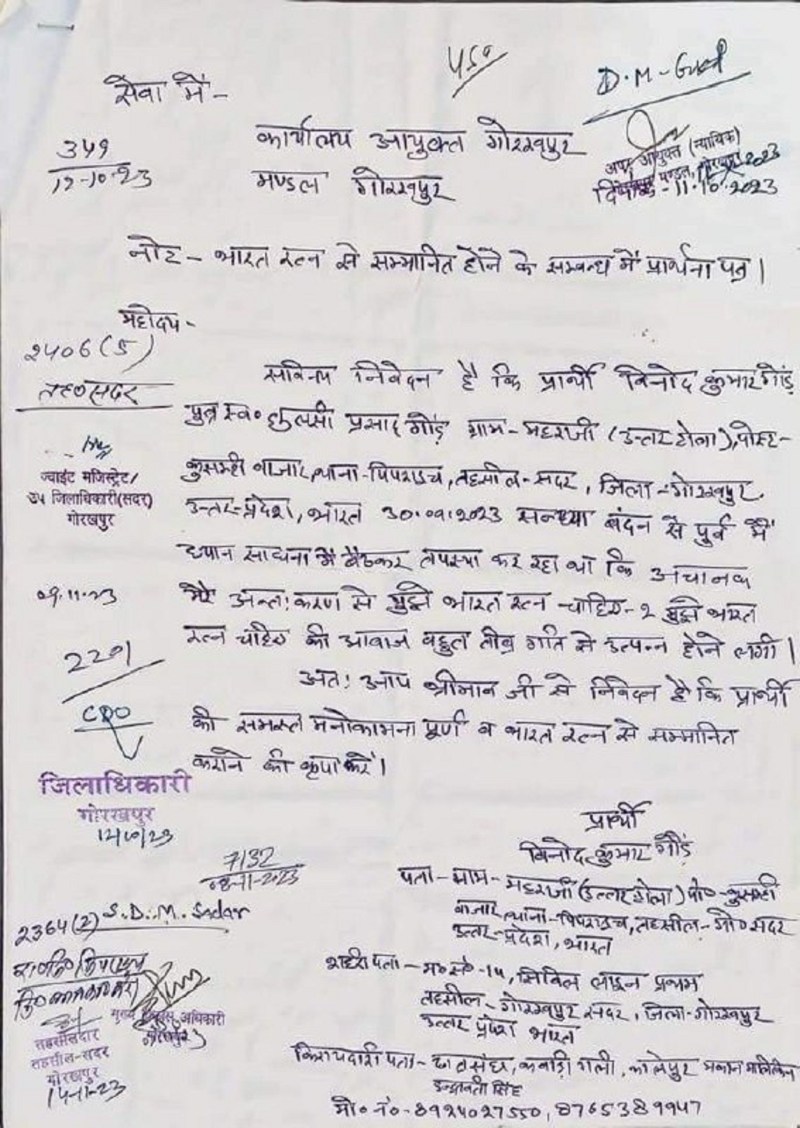 450
D.M-
सेवा में -
349
12-10-23
कार्यालय आयुक्त गोरखपुर
मण्डल गोरखपुर
अपर आयुक्त (न्यायिक)
मण्डल, गोरखपुर
दिनांक - 11.10.2023
नोट - भारत रत्न से सम्मानित होने के सम्बन्ध में प्रार्थना पत्र।
महोदय -
2406(5)
तह०सदर
सविनय निवेदन है कि प्रार्थी विनोद कुमार गौंड़
पुत्र स्व० तुलसी प्रसाद गौंड़ ग्राम - महराजी (उत्तर टोला), पोस्ट -
कुसम्ही बाजार, थाना - पिपराइच, तहसील - सदर, जिला - गोरखपुर,
उत्तर - प्रदेश, भारत 30.09.2023 सन्ध्या बंदन से पुर्व में
ध्यान साधना में बैठकर तपस्या कर रहा था कि अचानक
मेरे अन्त: करण से मुझे भारत रत्न चाहिए - २ मुझे भारत
रत्न चाहिए की आवाज बहुत तीब्र गति से उत्पन्न होने लगी।
अत: आप श्रीमान जी से निवेदन है कि प्रार्थी
की समस्त मनोकामना पूर्ण व भारत रत्न से सम्मानित
कराने की कृपा करें।
ज्वाईट मजिस्ट्रेट/
उप जिलाधिकारी(सदर)
गोरखपुर
09.11.23
2201
CDO
जिलाधिकारी
गोरखपुर
12/10/23
7132
08-11-2023
2364(2) S.D.M. Sadar
मुख्य विकास अधिकारी
गोरखपुर
तहसीलदार
तहसील-सदर
गोरखपुर
14-11-23
प्रार्थी
विनोद कुमार गौंड़
पता - ग्राम - महराजी (उत्तर टोला) पो० - कुसम्ही
बाजार, थाना - पिपराइच, तहसील - गो० सदर
उत्तर - प्रदेश, भारत
शहरी पता - म० सं० - 14, सिविल लाइन प्रथम
तहसील - गोरखपुर सदर, जिला - गोरखपुर
उत्तर प्रदेश भारत
किरायेदारी पता - छात्रसंघ, कबाड़ी गली, कालेपुर मकान मालिकिन
इन्द्रावती सिंह
मो० नं० - 8924027550, 8765389947